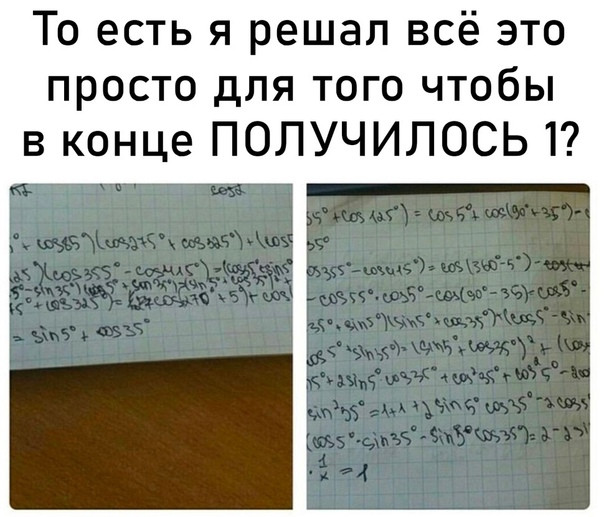 То есть я решал всё это
просто для того чтобы
в конце ПОЛУЧИЛОСЬ 1?
cosα
° + cos85°)(cos275° + cos325°) + (cos5
25°)(cos355° - cos415°) = (cos5° sin5°
5° + cos325°) =
= sin5° + cos35°
55° + cos125°) = cos5° + cos(90° + 35°) - c
35°
os355° - cos415°) = cos(360° - 5°) - cos(4
- cos55° = cos5° - cos(90° - 35) = cos5° -
35° + sin5°)(sin5° + cos35°) + (cos5° - sin
os5° + sin35°) = (sin5° + cos35°)² + (cos
5° + 2sin5° cos35° + cos²35° + cos²5° - 2co
sin²35° = 1+1 + 2 sin5° cos35° - 2 cos5
(cos5° · sin35° - sin5° cos35°) = 2 - 2 si
· 1/x = 1